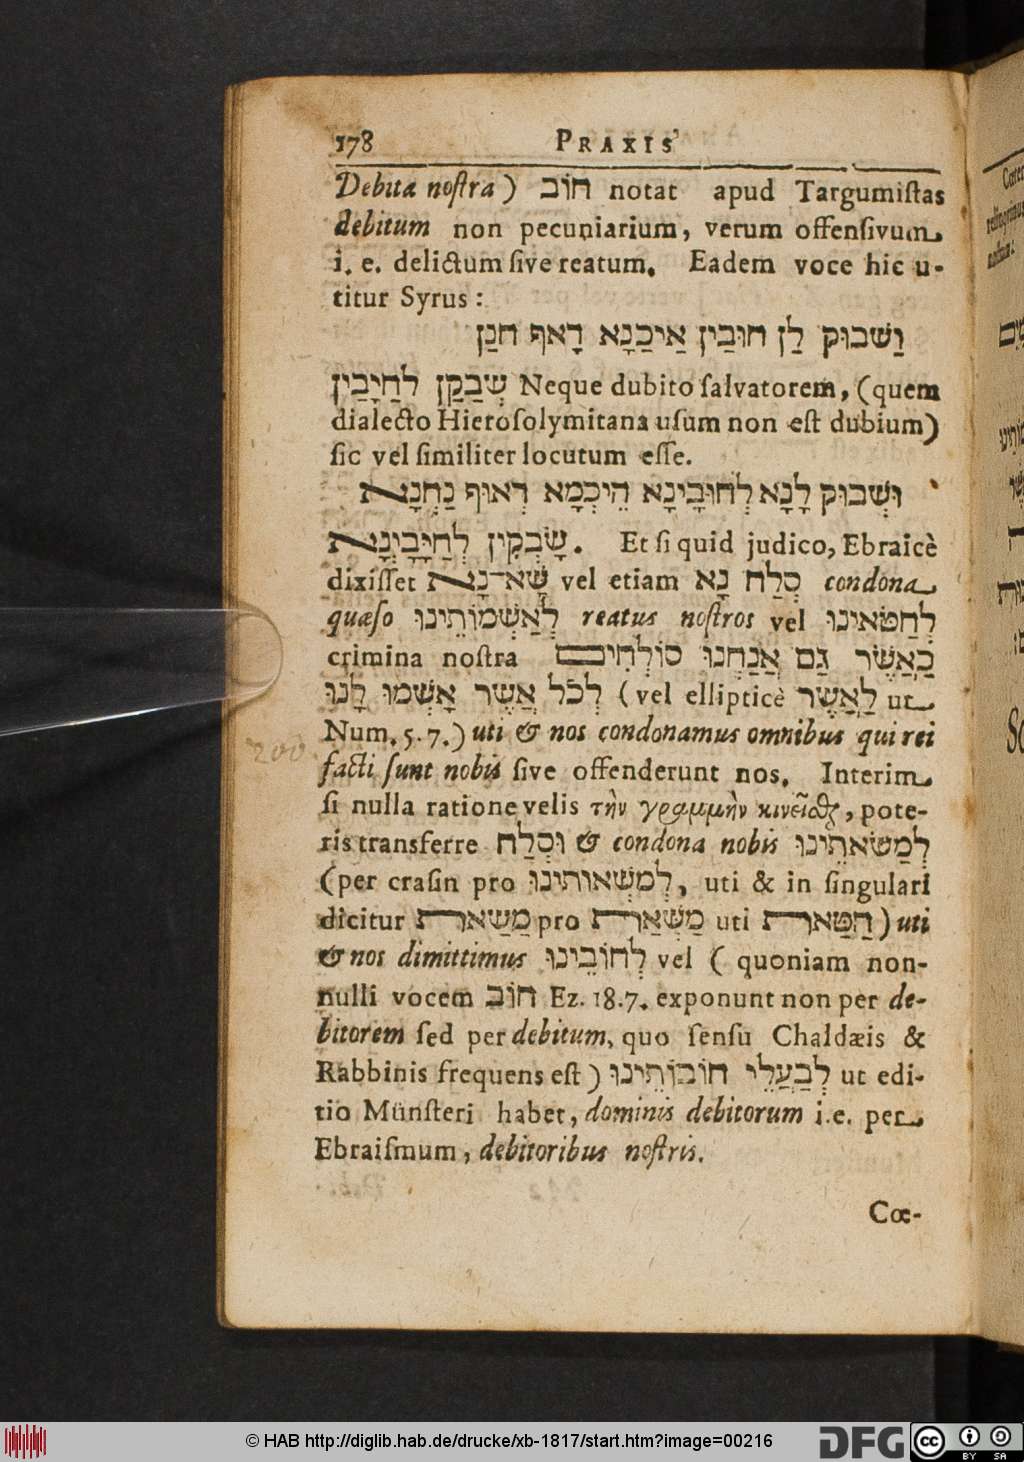 178 PRAXIS
Debita noſtra) חוֹב notat apud Targumiſtas
debitum non pecuniarium, verum offenſivum
i. e. delictum ſive reatum. Eadem voce hic u-
titur Syrus:
וַשׁבוּק לַן חוּבַין אַיכַנָא דָאף חנַן
שְׁבַקַן לחַיָבַין Neque dubito ſalvatorem, (quem
dialecto Hieroſolymitana uſum non eſt dubium)
ſic vel ſimiliter locutum eſſe.
וּשְׁבוּק לָנָא לְחוּבָינָא הֵיכְמָא דְאוּף נַחְנָא
שָׁבְקִין לְחַיָּבָיְנָא. Et ſi quid judico, Ebraicè
dixiſſet שָׂא־נָא vel etiam סְלַח נָא condona
quæſo לְאַשְׁמוֹתֵינוּ reatus noſtros vel לְחַטֹּאינוּ
crimina noſtra כַּאֲשֶׁר גַּם אֲנַחְנוּ סוֹלְחִים
לְכֹל אֲשֶׁר אָשְׁמוּ לָנוּ (vel ellipticè לַאֲשֶׁר ut
Num. 5. 7.) uti & nos condonamus omnibus qui rei
facti ſunt nobis ſive offenderunt nos. Interim
ſi nulla ratione velis τὴν γραμμὴν κινεῖσθαι, pote-
ris transferre וּסְלַח & condona nobis לְמַשֹּׁאתֵינוּ
(per craſin pro לְמַשְׁאוֹתֵינוּ, uti & in ſingulari
dicitur מַשַּׁאת pro מַשְׁאַת uti חַטָּאת) uti
& nos dimittimus לְחוֹבֵינוּ vel (quoniam non-
nulli vocem חוֹב Ez. 18. 7. exponunt non per de-
bitorem ſed per debitum, quo ſenſu Chaldæis &
Rabbinis frequens eſt) לְבַעֲלֵי חוֹבוֹתֵינוּ ut edi-
tio Münſteri habet, dominis debitorum i. e. per
Ebraiſmum, debitoribus noſtris.
Cœ-
200
© HAB http://diglib.hab.de/drucke/xb-1817/start.htm?image=00216
DFG cc BY SA